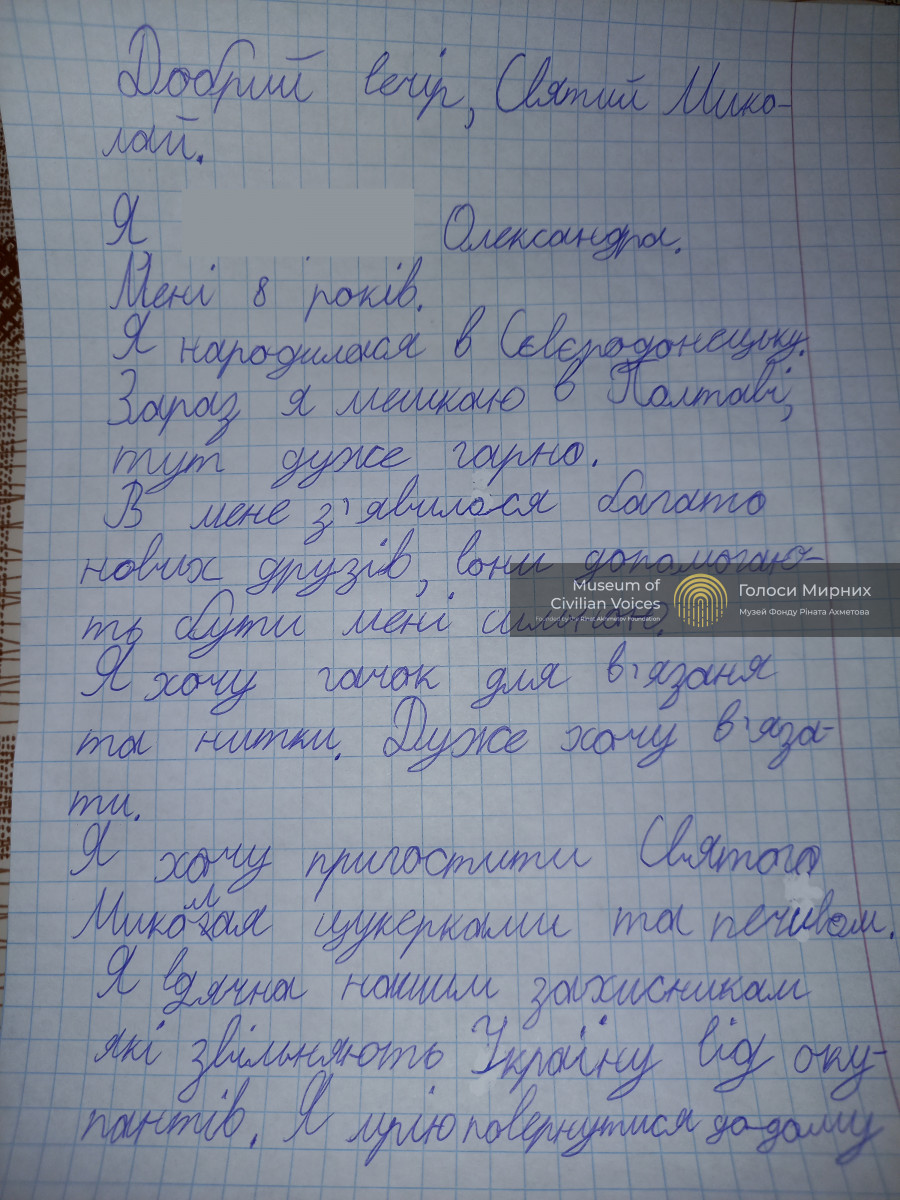 Добрий вечір, Святий Мико-
лай.
Я Олександра.
Мені 8 років.
Я народилася в Сєвєродонецьку.
Зараз я мешкаю в Полтаві,
тут дуже гарно.
В мене з'явилося багато
нових друзів, вони допомогаю-
Museum of
Civilian Voices
Founded by the Rinat Akhmetov Foundation
Голоси Мирних
Музей Фонду Ріната Ахметова
ть бути мені сильною.
Я хочу гачок для в'язаня
та нитки. Дуже хочу в'яза-
ти.
Я хочу пригостити Святого
Миколая цукерками та печивом.
Я вдячна нашим захисникам
які звільняють Україну від оку-
пантів. Я мрію повернутися до-дому